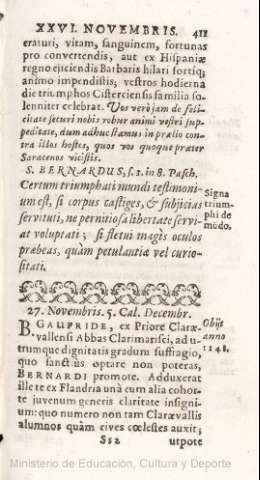 XXVI. NOVEMBRIS. 411
eraturi, vitam, sanguinem, fortunas
pro convertendis, aut ex Hispaniæ
regno ejiciendis Barbaris hilari fortiq;
animo impendistis; vestros hodierna
die triumphos Cisterciensis familia so-
lenniter celebrat. Vos verò jam de feli-
citate securi nobis robur animi vestri sup-
peditate, dum adhuc stamus in prælio con-
tra illos hostes, quos vos quoque præter
Saracenos vicistis.
S. BERNARDUS, s. 1. in 8. Pasch.
Certum triumphati mundi testimoni-
um est, si corpus castiges, & subjicias
servituti, ne perniciosa libertate servi-
at voluptati; si fletui magis oculos
præbeas, quàm petulantiæ vel curio-
sitati.
Signa
trium-
phi de
mũdo.
27. Novembris. 5. Cal. Decembr.
B GAUFRIDE, ex Priore Claræ-
vallensi Abbas Clarimarisci, ad u-
trumque dignitatis gradum suffragio,
quo sanctius optare non poteras,
BERNARDI promote. Adduxerat
ille te ex Flandria unà cum alia cohor-
te juvenum generis claritate insigni-
um: quo numero non tam Claræ vallis
alumnos quàm cives cœlestes auxit;
Obijt
anno
1248.
Ss2 utpote
Ministerio de Educación, Cultura y Deporte